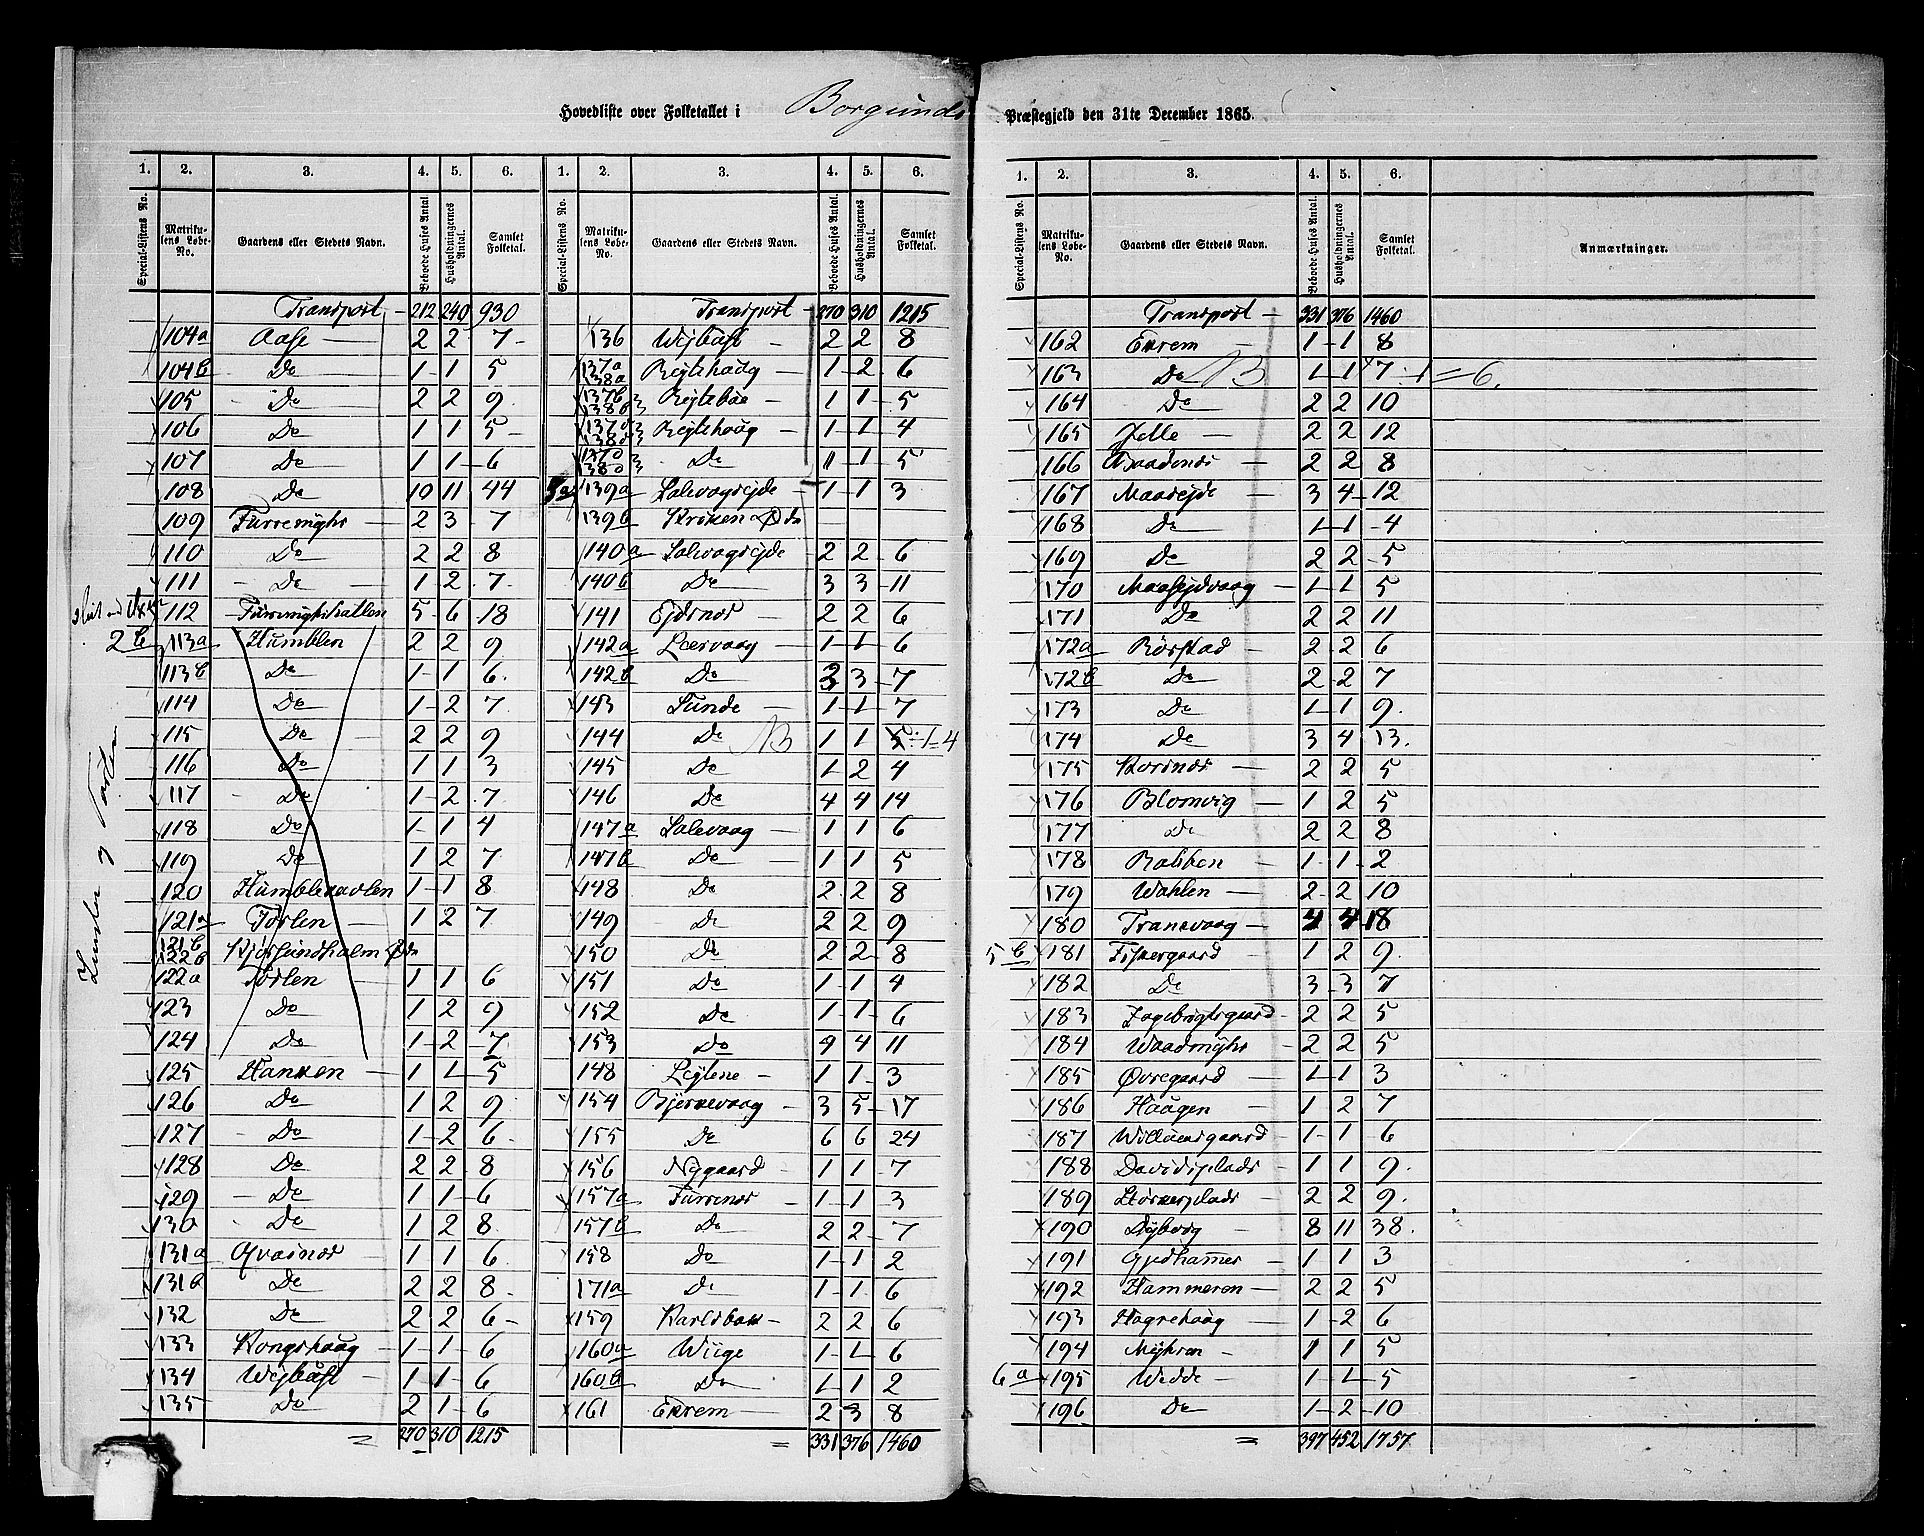 Hovedliste over Folketallet i Borgunds Præstegjeld den 31te December 1865.
1. 2. 3. 4. 5. 6. 1. 2. 3. 4. 5. 6.
Special-Listens No. Matrikulens Løbe-No. Gaardens eller Stedets Navn. Beboede Huses Antal. Husholdningernes Antal. Samlet Folketal. Special-Listens No. Matrikulens Løbe-No. Gaardens eller Stedets Navn. Beboede Huses Antal. Husholdningernes Antal. Samlet Folketal.
Transport 212 240 930
104a Aase 2 2 7
104b Do 1 1 5
105 Do 2 2 9
106 Do 1 1 5
107 Do 1 1 6
108 Do 10 11 44
109 Furremyhr 2 3 7
110 Do 2 2 8
111 Do 1 2 7
112 5 6 18
2b 113a Humblen 2 2 9
113b Do 1 1 6
114 Do 1 2 7
115 Do 2 2 9
116 Do 1 1 3
117 Do 1 2 7
118 Do 1 1 4
119 Do 1 2 7
120 1 1 8
121a Torlen 1 2 7
121b 122b Kjørsundholm Øde
122a Torlen 1 1 6
123 Do 1 2 9
124 Do 1 2 7
125 Hanken 1 1 5
126 Do 1 2 9
127 Do 1 2 6
128 Do 2 2 8
129 Do 1 1 6
130 Do 1 2 8
131a Qvasnæs 1 1 6
131b Do 2 2 8
132 Do 2 2 6
133 Kongshaug 1 1 6
134 Wejbust 1 1 6
135 Do 2 1 6
= 270 310 1215
Transport 270 310 1215
136 Wejbust 2 2 8
137a 138a Rejtehaug 1 2 6
137b 138b Rejtebøe 1 1 5
137c 138c Rejtehaug 1 1 4
137d 138d Do 1 1 5
3a 139a Salevagsejde 1 1 3
139b Kroken Øde
140a Salevagsejde 2 2 6
140b Do 3 3 11
141 Ejdsnæs 2 2 6
142a Leervaag 1 1 6
142b Do 3 3 7
143 Sunde 1 1 7
144 Do NB 1 1 5÷1=4
145 Do 1 2 4
146 Do 4 4 14
147a Salevaag 1 1 6
147b Do 1 1 5
148 Do 2 2 8
149 Do 2 2 9
150 Do 2 2 8
151 Do 1 1 4
152 Do 1 1 6
153 Do 4 4 11
148 Lejtene 1 1 3
154 Bjørnevaag 3 5 17
155 Do 6 6 24
156 Nygaard 1 1 7
157a Furenæs 1 1 3
157b Do 2 2 7
158 Do 1 1 2
171a Do 1 1 6
159 2 2 6
160a Wiige 1 1 6
160b Do 1 1 2
161 Ekrem 2 3 8
= 331 376 1460
1. 2. 3. 4. 5. 6.
Special-Listens No. Matrikulens Løbe-No. Gaardens eller Stedets Navn. Beboede Huses Antal. Husholdningernes Antal. Samlet Folketal. Anmærkninger.
Transport 331 376 1460
162 Ekrem 1 1 8
163 Do NB 1 1 7÷1=6.
164 Do 2 2 10
165 Jelle 2 2 12
166 Baadsnæs 2 2 8
167 Maasejde 3 4 12
168 Do 1 1 4
169 Do 2 2 5
170 Maasejdvaag 1 1 5
171 Do 2 2 11
172a Rørstad 2 2 6
172b Do 2 2 7
173 Do 1 1 9
174 Do 3 4 13
175 Korsnæs 2 2 5
176 Blomvig 1 2 5
177 Do 2 2 8
178 Rabben 1 1 2
179 Wahlen 2 2 10
180 Tranevaag 4 4 18
5b 181 Fiskergaard 1 2 9
182 Do 3 3 7
183 Ingebrigtsgaard 2 2 5
184 Waadmyhr 2 2 5
185 Øvregaard 1 1 3
186 Haagen 1 2 7
187 Willumsgaard 1 1 6
188 Davidsplads 1 1 9
189 Størkerplads 2 2 9
190 Dybvig 8 11 38
191 Gjedhamer 1 1 3
192 Hammeren 2 2 5
193 Hagrehaug 1 2 6
194 Myhren 1 1 5
6a 195 Wedde 1 1 5
196 Do 1 2 10
= 397 452 1757